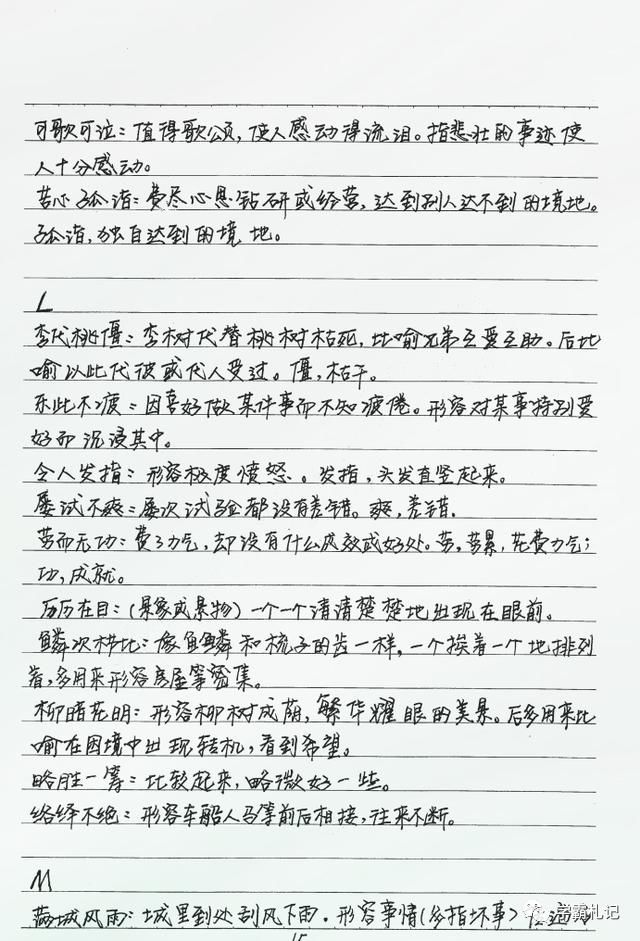 可歌可泣：值得歌颂，使人感动得流泪。指悲壮的事迹使
人十分感动。
苦心孤诣：费尽心思钻研或经营，达到别人达不到的境地。
孤诣，独自达到的境地。
L
李代桃僵：李树代替桃树枯死，比喻兄弟互爱互助。后比
喻以此代彼或代人受过。僵，枯干。
乐此不疲：因喜好做某件事而不知疲倦。形容对某事特别爱
好而沉浸其中。
令人发指：形容极度愤怒。。发指，头发直竖起来。
屡试不爽：屡次试验都没有差错。爽，差错.
劳而无功：费了力气，却没有什么成效或好处。劳，劳累，花费力气；
功，成就。
历历在目：（景象或景物）一个一个清清楚楚地出现在眼前。
鳞次栉比：像鱼鳞和梳子的齿一样，一个挨着一个地排列
着，多用来形容房屋等密集。
柳暗花明：形容柳树成荫，繁华耀眼的美景。后多用来比
喻在困境中出现转机，看到希望。
略胜一筹：比较起来，略微好一些。
络绎不绝：形容车船人马等前后相接，往来不断。
M
满城风雨：城里到处刮风下雨．形容事情（多指坏事）
学霸札记
15